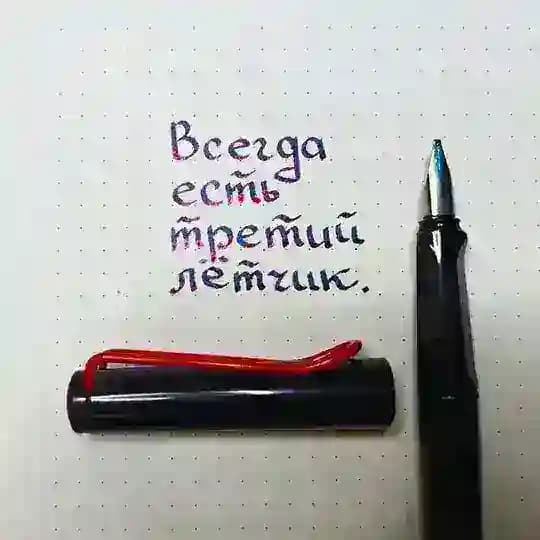 Всегда
есть
третий
лётчик.